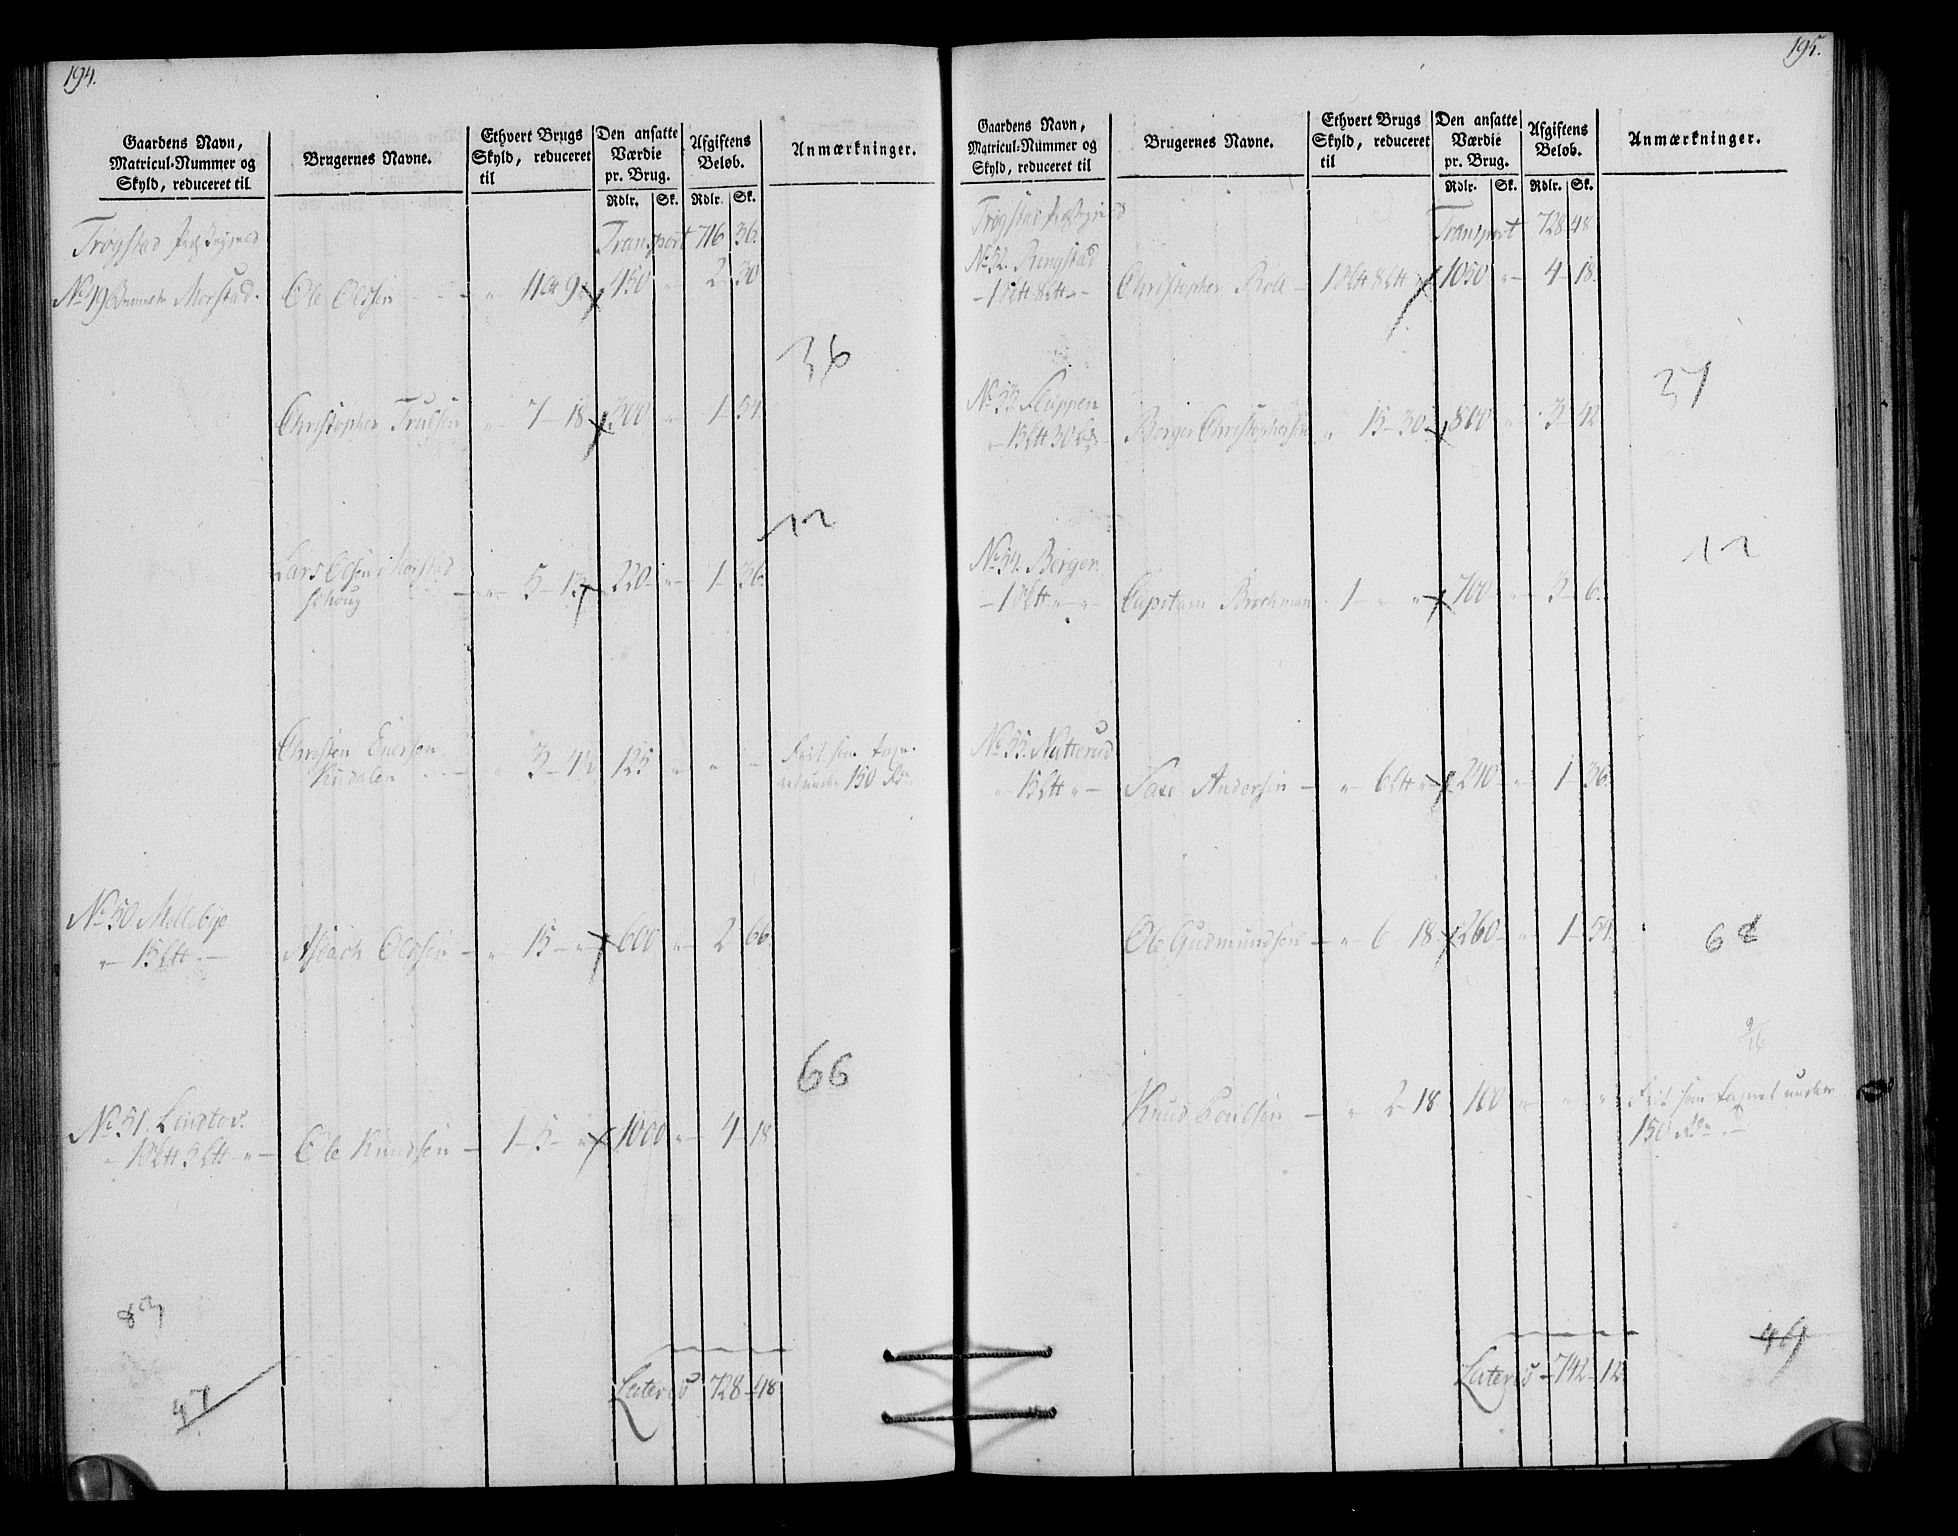 194.
Gaardens Navn,
Matricul-Nummer og
Skyld, reduceret til
Brugernes Navne.
Ethvert Brugs
Skyld, reduceret
til
Den ansatte
Værdie
pr. Brug.
Rdlr. Sk.
Afgiftens
Beløb.
Rdlr. Sk.
Anmærkninger.
Trøgstad
Transport 716 36.
Morstad. Ole Olsen 9 150 2 30
36
Christopher Trulsen 7-18 300 1-54
12
Lars Olsen Morstad
5-13 220 1-36.
Christen Enersen 3-4½ 125
Frit som tagn.
under 150 Rdr
No 50 Mellebye
15 Asbach Olsen 15 600 2 66.
66
No 51. Lindtov.
Ole Knudsen 1-5 1000 4-18
83
47
Lateris 728-48
195.
Gaardens Navn,
Matricul-Nummer og
Skyld, reduceret til
Brugernes Navne.
Ethvert Brugs
Skyld, reduceret
til
Den ansatte
Værdie
pr. Brug.
Rdlr. Sk.
Afgiftens
Beløb.
Rdlr. Sk.
Anmærkninger.
Trøgstad
Transport 728 48
No 52. Ringstad
Christopher 1050 4-18.
37
No 53 Sluppen
Borger Christophersen 15-30 800 3-42
12
No 54. Berger.
Capitain Brochman 1 700 3-6.
No 55. Natterud
Andersen 6 240 1-36.
Ole Gudmundsen 6-18 260 1-54.
68
9/16
Knud Poulsen 2-18 100
Frit som tagnet under
150 Rdr
49
Lateris 742-12